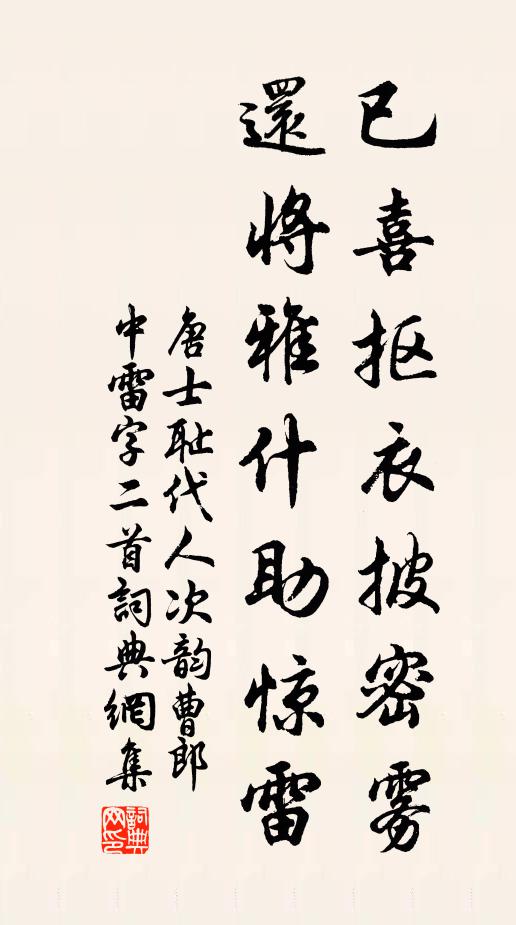 已喜抠衣披密雾
還将雅什助惊雷
唐士耻代人次韵曹郎
中雷字二首詞典網集
詞典網印